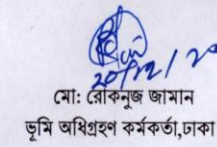 ২০/১২/২০
মো: রোকনুজ জামান
ভূমি অধিগ্রহণ কর্মকর্তা,ঢাকা